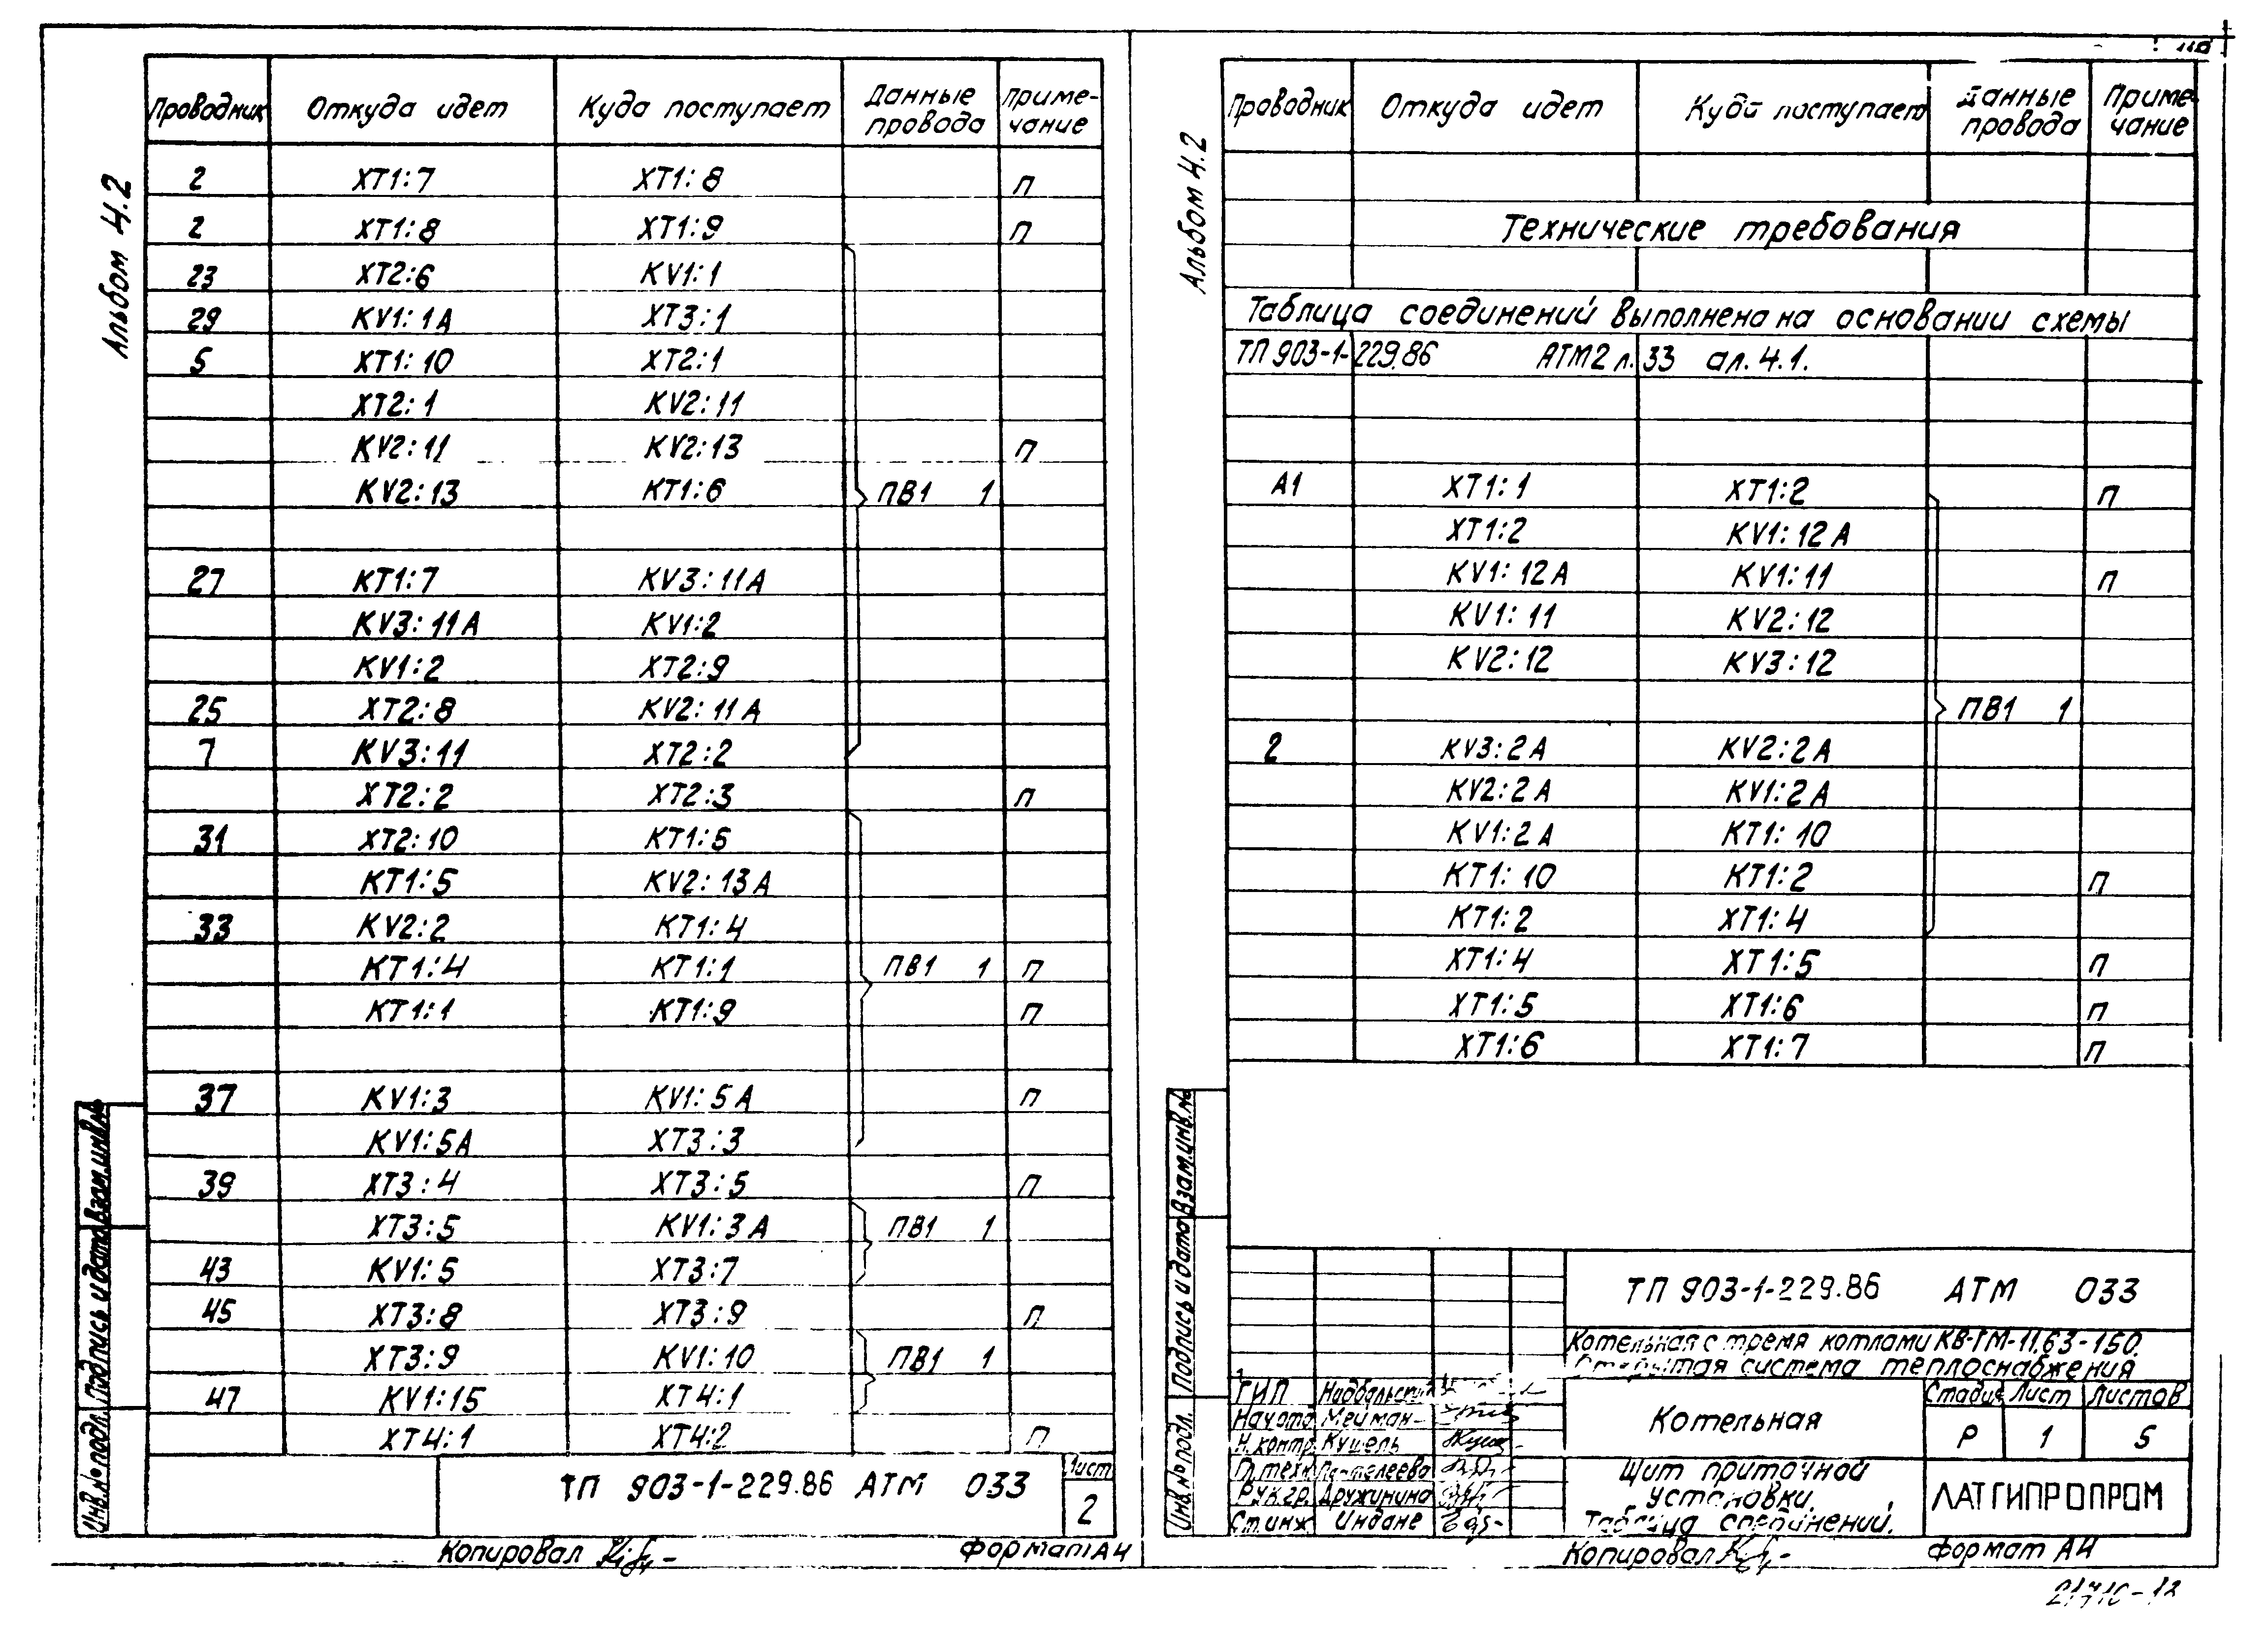 Альбом 4.2
Проводник Откуда идет Куда поступает Данные провода Примечание
2 XT1:7 XT1:8 П
2 XT1:8 XT1:9 П
23 XT2:6 KV1:1
29 KV1:1А XT3:1
5 XT1:10 XT2:1
XT2:1 KV2:11
KV2:11 KV2:13 П
KV2:13 KT1:6 ПВ1 1
27 KT1:7 KV3:11А
KV3:11А KV1:2
KV1:2 XT2:9
25 XT2:8 KV2:11А
7 KV3:11 XT2:2
XT2:2 XT2:3 П
31 XT2:10 KT1:5
KT1:5 KV2:13А
33 KV2:2 KT1:4
KT1:4 KT1:1 ПВ1 1 П
KT1:1 KT1:9 П
37 KV1:3 KV1:5А П
KV1:5А XT3:3
39 XT3:4 XT3:5 П
XT3:5 KV1:3А ПВ1 1
43 KV1:5 XT3:7
45 XT3:8 XT3:9 П
XT3:9 KV1:10 ПВ1 1
47 KV1:15 XT4:1
XT4:1 XT4:2 П
ТП 903-1-229.86 АТМ 033
Лист
2
Инв.№ подл. Подпись и дата Взам.инв.№
Копировал
Формат А4
Альбом 4.2
Проводник Откуда идет Куда поступает Данные провода Примечание
Технические требования
Таблица соединений выполнена на основании схемы
ТП 903-1-229.86 АТМ2 л.33 ал.4.1.
А1 XT1:1 XT1:2 П
XT1:2 KV1:12А
KV1:12А KV1:11 П
KV1:11 KV2:12
KV2:12 KV3:12
ПВ1 1
2 KV3:2А KV2:2А
KV2:2А KV1:2А
KV1:2А KT1:10
KT1:10 KT1:2 П
KT1:2 XT1:4
XT1:4 XT1:5 П
XT1:5 XT1:6 П
XT1:6 XT1:7 П
Инв.№ подл. Подпись и дата Взам.инв.№
ТП 903-1-229.86 АТМ 033
Котельная с тремя котлами КВ-ГМ-11,63-150.
Открытая система теплоснабжения
ГИП
Нач.отд. Мейман
Н.контр. Кушель
Гл.техн. Пантелеева
Рук.гр. Дружинина
Ст.инж Индане
Котельная
Стадия Лист Листов
Р 1 5
Щит приточной
установки.
Таблица соединений.
ЛАТГИПРОПРОМ
Копировал
Формат А4